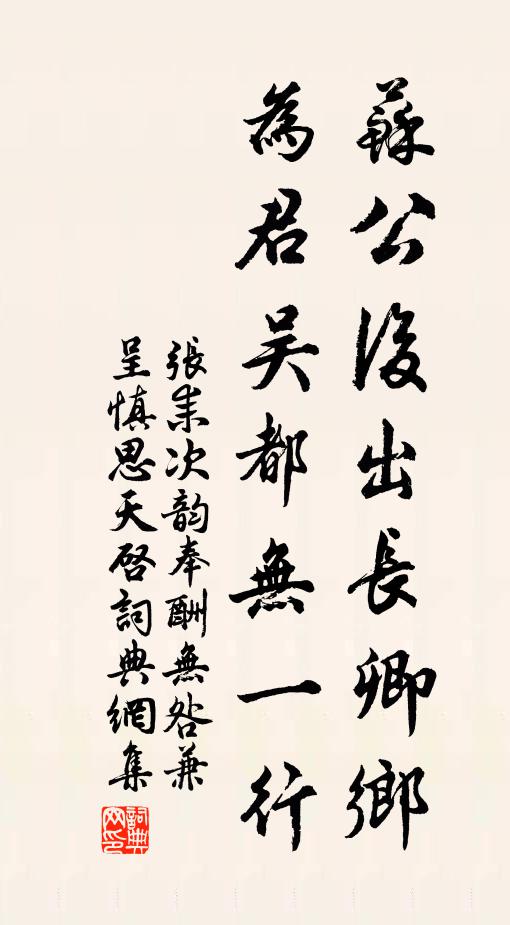 蘇公後出長卿鄉
為君吴都無一行
張耒次韵奉酬無咎兼
呈慎思天啓詞典網集
詞典
网印